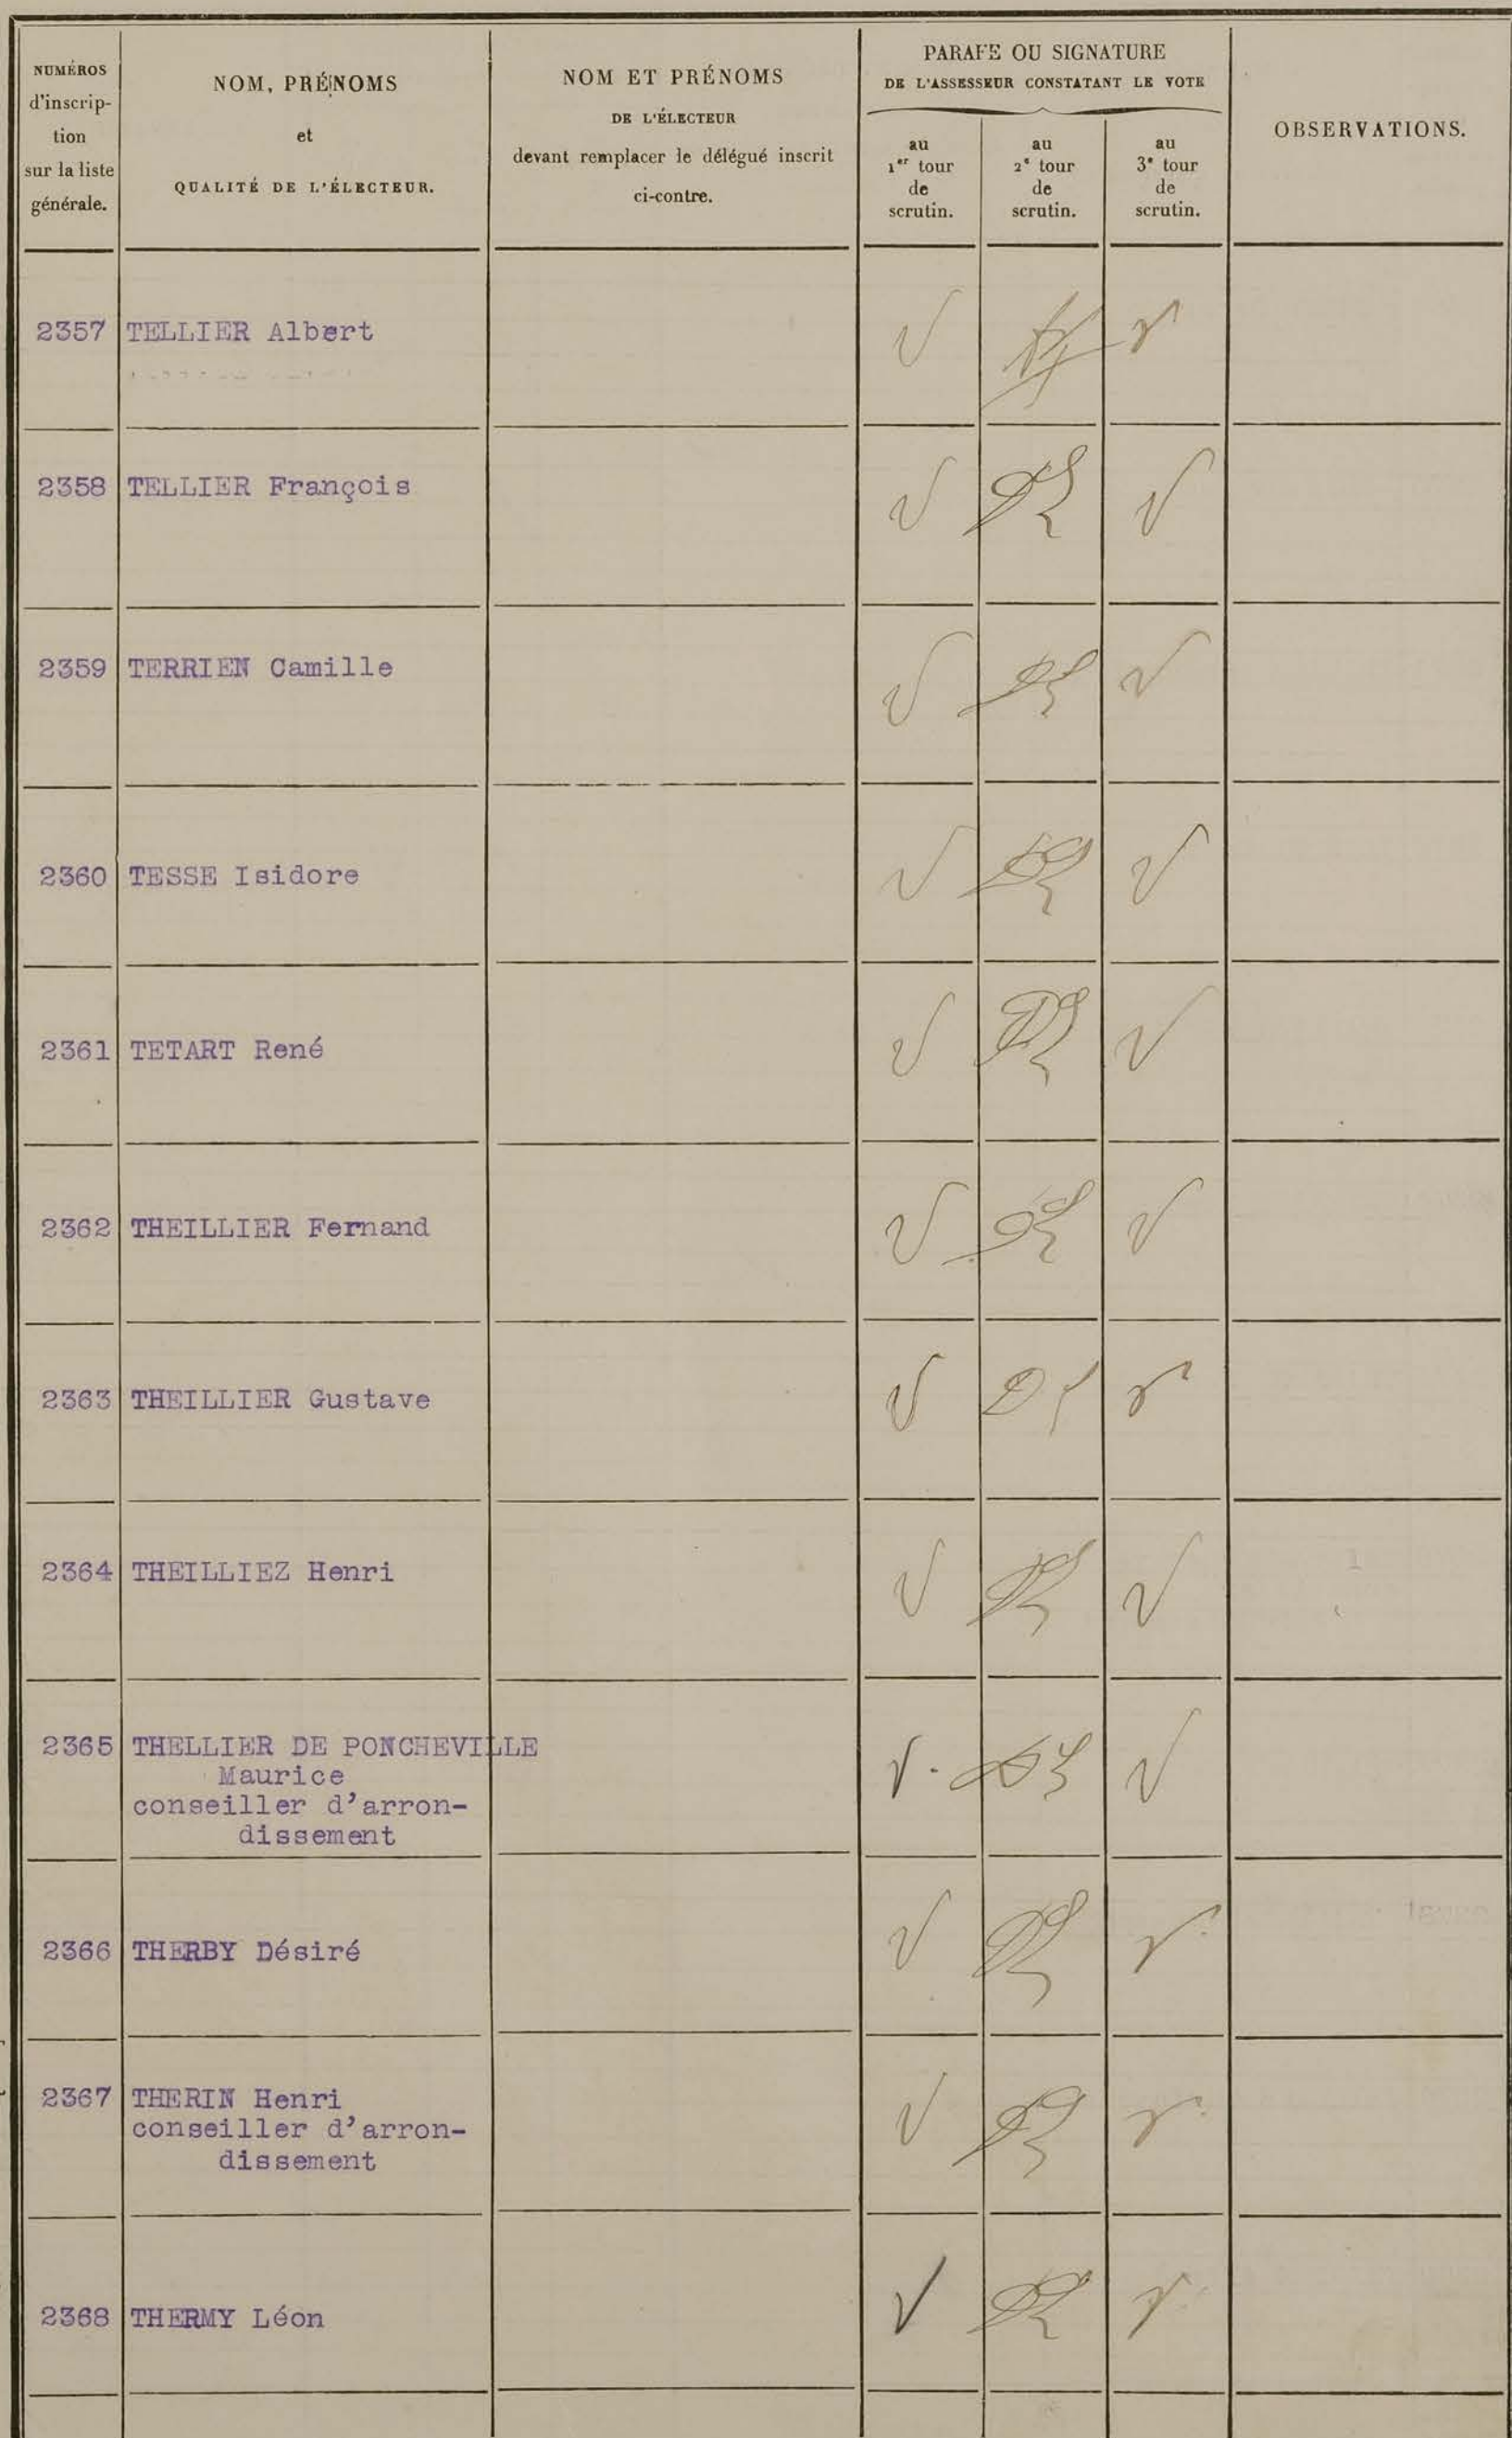 NUMÉROS
d'inscrip-
tion
sur la liste
générale.
NOM, PRÉNOMS
et
QUALITÉ DE L'ÉLECTEUR.
NOM ET PRÉNOMS
DE L'ÉLECTEUR
devant remplacer le délégué inscrit
ci-contre.
PARAFE OU SIGNATURE
DE L'ASSESSEUR CONSTATANT LE VOTE
au
1er tour
de
scrutin.
au
2e tour
de
scrutin.
au
3e tour
de
scrutin.
OBSERVATIONS.
2357 TELLIER Albert
2358 TELLIER François
2359 TERRIEN Camille
2360 TESSE Isidore
2361 TETART René
2362 THEILLIER Fernand
2363 THEILLIER Gustave
2364 THEILLIEZ Henri
2365 THELLIER DE PONCHEVILLE
Maurice
conseiller d'arron-
dissement
2366 THERBY Désiré
2367 THERIN Henri
conseiller d'arron-
dissement
2368 THERMY Léon